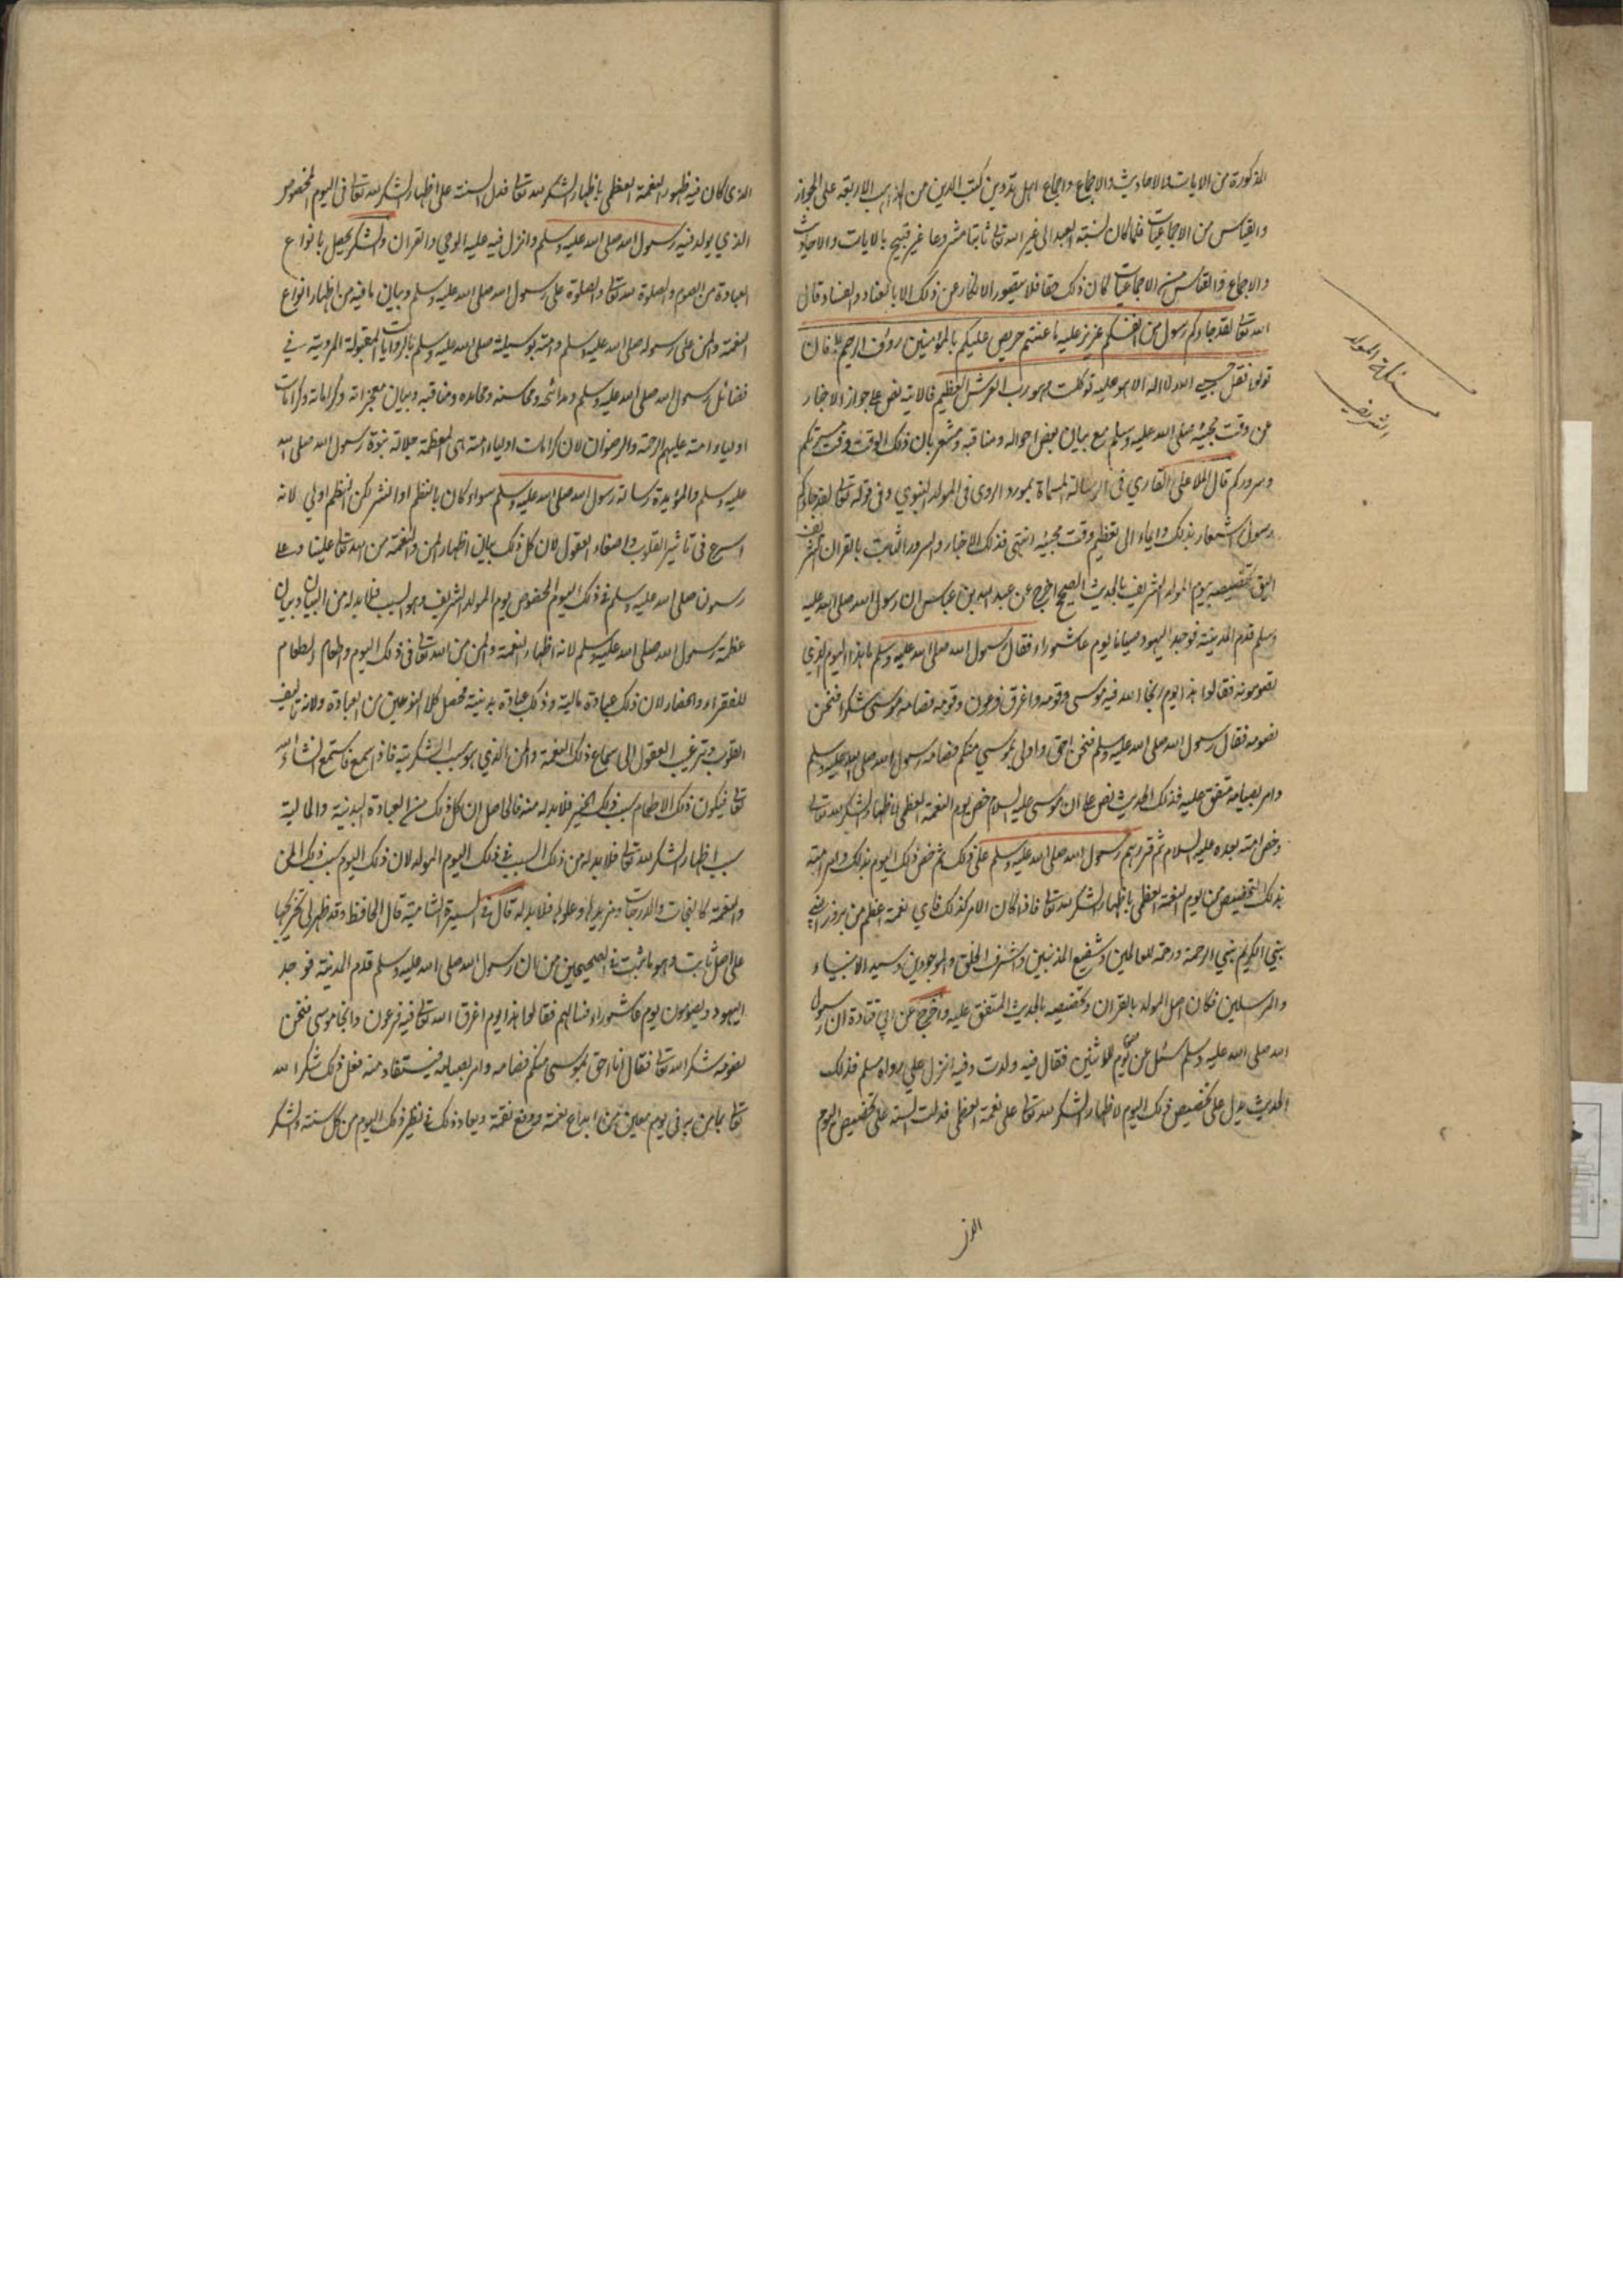 المذكورة من الايات والاحاديث والاجماع واجماع اهل تدوين كتب الدين من المذاهب الاربعة على الجواز
والقياس من الاجماعيات فلما كان نسبة العبد الى غير الله تعالى ثابتا مشروعا غير قبيح بالايات والاحاديث
والاجماع والقياس من الاجماعيات كان ذلك حقا فلا يتصور الانكار عن ذلك الا بالعناد والفساد قال
الله تعالى لقد جاءكم رسول من انفسكم عزيز عليه ما عنتم حريص عليكم بالمؤمنين رؤف الرحيم فان
تولوا فقل حسبي الله لا اله الا هو عليه توكلت وهو رب العرش العظيم فالاية نص على جواز الاخبار
عن وقت مجيئه صلى الله عليه وسلم مع بيان بعض احواله ومناقبه ومشعر بان ذلك الوقت وقت
وسروركم قال الملا علي القاري في الرسالة المسماة بمورد الروى في المولد النبوي وفي قوله تعالى لقد جاءكم
رسول اشعار بذلك وايماء الى تعظيم وقت مجيئه انتهى فذلك الاخبار والسرور ثابت بالقران الشريف
تخصيصه بيوم المولد الشريف بالحديث الصحيح اخرج عن عبد الله بن عباس ان رسول الله صلى الله عليه
وسلم قدم المدينة فوجد اليهود صياما يوم عاشوراء فقال رسول الله صلى الله عليه وسلم ما هذا اليوم الذي
تصومونه فقالوا هذا يوم انجا الله فيه موسى وقومه واغرق فرعون وقومه فصامه موسى شكرا فنحن
نصومه فقال رسول الله صلى الله عليه وسلم فنحن احق واولى بموسى منكم فصامه رسول الله صلى الله عليه وسلم
وامر بصيامه متفق عليه فذلك الحديث نص على ان موسى عليه السلام خص يوم النعمة العظمى باظهار الشكر لله تعالى
وخص امته بعده عليه السلام ثم قررهم رسول الله صلى الله عليه وسلم على ذلك ثم خص ذلك اليوم بذلك وامر امته
بذلك التخصيص من يوم النعمة العظمى باظهار الشكر لله تعالى فاذا كان الامر كذلك فاي نعمة اعظم من بروز
نبي الكريم نبي الرحمة ورحمة للعالمين وشفيع المذنبين واشرف الخلق والموجودين وسيد الانبياء
والمرسلين فكان اصل المولد بالقران وتخصيصه بالحديث المتفق عليه واخرج عن ابي قتادة ان رسول
الله صلى الله عليه وسلم سئل عن صوم يوم الاثنين فقال فيه ولدت وفيه انزل علي رواه مسلم فذلك
الحديث يدل على تخصيص ذلك اليوم لاظهار الشكر لله تعالى على نعمة العظمى فدلت السنة على تخصيص اليوم
الذي
مسئلة المولد
الشريف
الذي كان فيه ظهور النعمة العظمى باظهار الشكر لله تعالى فدل السنة على اظهار الشكر لله تعالى في اليوم المخصوص
الذي يولد فيه رسول الله صلى الله عليه وسلم وانزل فيه عليه الوحي والقران والشكر يحصل بانواع
العبادة من الصوم والصلوة لله تعالى والصلوة على رسول الله صلى الله عليه وسلم وبيان ما فيه من اظهار انواع
النعمة والمن على رسوله صلى الله عليه وسلم وامته بوسيلته صلى الله عليه وسلم بالروايات المقبولة المروية في
فضائل رسول الله صلى الله عليه وسلم ومدائحه ومحاسنه ومحامده ومناقبه وبيان معجزاته وكراماته وكرامات
اولياء امته عليهم الرحمة والرضوان لان كرامات اولياء امته هي العظمة جلالة نبوة رسول الله صلى الله
عليه وسلم والمؤيدة رسالة رسول الله صلى الله عليه وسلم سواء كان بالنظم او النثر لكن النظم اولى لانه
اسرع في تاثير القلوب واصغاء العقول لان كل ذلك بيان اظهار المن والنعمة من الله تعالى علينا وعلى
رسولن صلى الله عليه وسلم في ذلك اليوم المخصوص يوم المولد الشريف وهو السبب فلا بد له من البيان وبيان
عظمة رسول الله صلى الله عليه وسلم لانه اظهار النعمة والمن من الله تعالى في ذلك اليوم واطعام الطعام
للفقراء والحضار لان ذلك عبادة مالية وذلك عبادة بدنية فحصل كلا النوعين من العبادة ولانه تاليف
القلوب وترغيب العقول الى سماع ذلك النعمة والمن الذي هو سبب الشكرية فاذا سمع فاستمع انشاء الله
تعالى فيكون ذلك الاطعام سبب ذلك الخير فلا بد له منه فالحاصل ان كل ذلك من العبادة البدنية والمالية
سبب اظهار الشكر لله تعالى فلا بد له من ذلك السبب في ذلك اليوم المولد لان ذلك اليوم سبب ذلك المن
والنعمة كالنجات والدرجات ومزيدها وعلوها فلا بد له قال في السيرة الشامية قال الحافظ وقد ظهر لي تخريجها
على اصل ثابت وهو ما ثبت في الصحيحين من ان رسول الله صلى الله عليه وسلم قدم المدينة فوجد
اليهود ويصومون يوم عاشوراء فسالهم فقالوا هذا يوم اغرق الله تعالى فيه فرعون وانجا موسى فنحن
نصومه شكرا لله تعالى فقال انا احق بموسى منكم فصامه وامر بصيامه فيستفاد منه فعل ذلك شكرا لله
تعالى بما من به في يوم معين من ابداع نعمة ودفع نقمة ويعاد ذلك في نظير ذلك اليوم من كل سنة والشكر